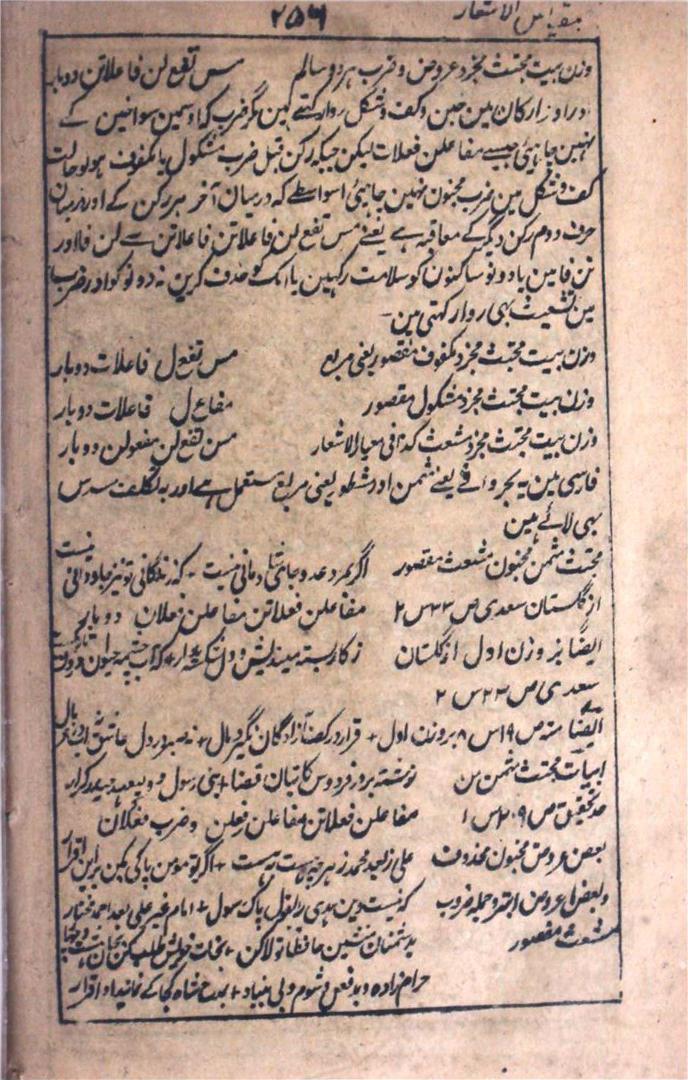 مقیاس الاشعار
۲۵۶
وزن بیت مجتث مجزو عروض و ضرب ہر دو سالم مس تفع لن فاعلاتن دوبار
اور اوزار کان مین خبن و کف و شکل روا رکہتے ہین مگر ضرب کہ اوسمین سوا خبن کے
نہین چاہیئی جیسے مفاعلن فعلات لیکن جبکہ رکن قبل ضرب مشکول یا مکفوف ہو تو حالت
کف و شکل مین ضرب مخبون نہین چاہیئی اسواسطے کہ درمیان آخر ہر رکن کے اور درمیان
حرف دوم رکن دیگر کے معاقبہ ہے یعنے مس تفع لن فاعلاتن فاعلاتن سے لن فا اور
تن فا مین یا دونو ساکنون کو سلامت رکہین یا ایک کو حذف کرین نہ دونو کو اور ضرب
مین تشعیث بہی روا رکہتی ہین۔
وزن بیت مجتث مجزو مکفوف مقصور یعنی مربع مس تفع ل فاعلات دوبار
وزن بیت مجتث مجزو مشکول مقصور مفاع ل فاعلات دوبار
وزن بیت مجتث مجزو مشعث کذا فی معیار الاشعار مس تفع لن مفعولن دوبار
فارسی مین یہ بحر وافی یعنے مثمن اور مشطور یعنی مربع مستعمل ہے اور بہ تکلف مسدس
بہی لائے ہین
مجتث مثمن مخبون مشعث مقصور اگر بمرد عدو جای شادمانی نیست + کہ زندگانی تو نیز جاودانی نیست
از گلستان سعدی ص ۳۳ س ۲ مفاعلن فعلاتن مفاعلن فعلان دوبار
ایضًا بر وزن اول از گلستان ز کار بستہ میندیش و دل شکستہ مدار + کہ آب چشمہ حیوان درون تاریکیست
سعدی ص ۲۳ س ۲
ایضًا منہ ص ۱۹ س ۸ بر وزن اول + قرار در کف آزادگان نگیرد مال + نہ صبر در دل عاشق نہ آب در غربال
ابیات مجتث مثمن من نوشتہ بر در فردوس کاتبان قضا + نبی رسول و
حد تحقیق ص ۲۰۹ س ۱ مفاعلن فعلاتن مفاعلن فعلن و ضرب فعلان
بعض عروض مخبون محذوف علی اگر تو مومن پاکی بکن برین اقرار
و بعض عروض ابتر و جملہ ضروب کہ نیست دین ہدی را بقول پاک رسول + امام غیر علی بعد احمد مختار
مشعث مقصور بدشمنان منشین حافظا تولا کن + نجات خویش طلب کن
حرام زادہ و بدفعل و شوم و بی بنیاد + بمدح شاہ کجا اقرار